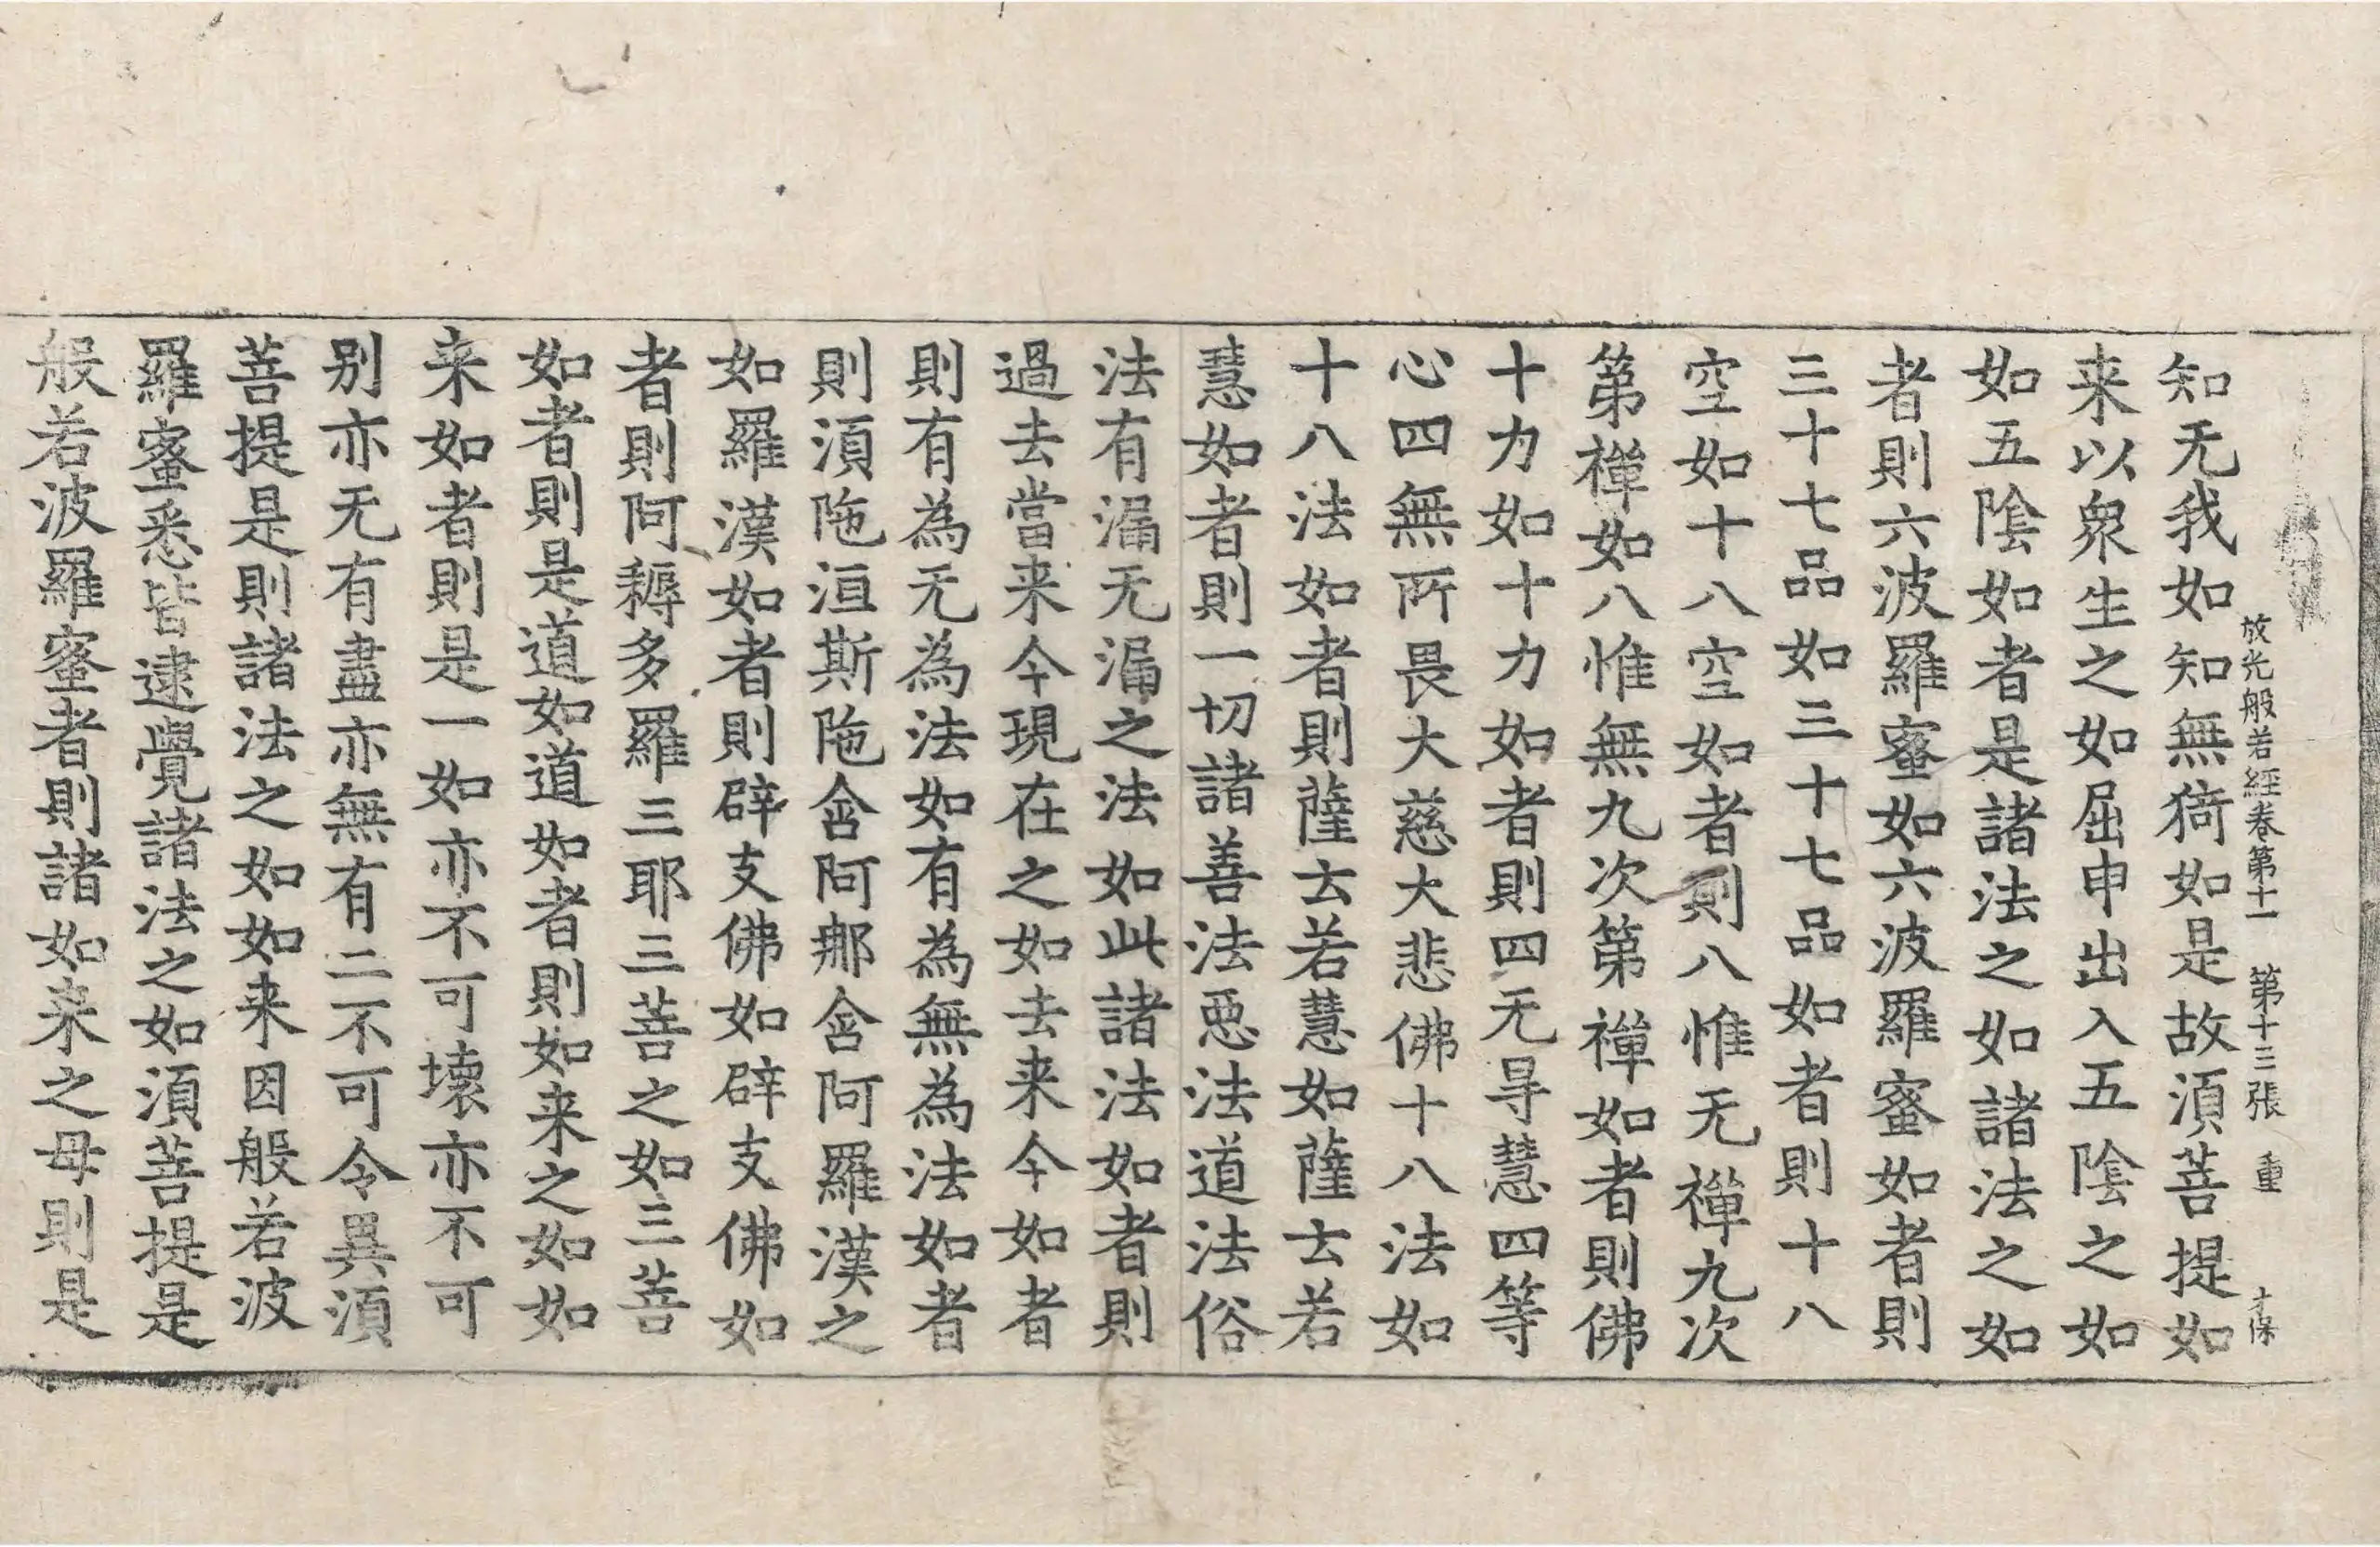 放光般若經卷第十一 第十三張 重 才保
知无我如知無猗如是故須菩提如
来以衆生之如屈申出入五陰之如
如五陰如者是諸法之如諸法之如
者則六波羅蜜如六波羅蜜如者則
三十七品如三十七品如者則十八
空如十八空如者則八惟无禪九次
第禪如八惟無九次第禪如者則佛
十力如十力如者則四无㝵慧四等
心四無所畏大慈大悲佛十八法如
十八法如者則薩云若慧如薩云若
慧如者則一切諸善法惡法道法俗
法有漏无漏之法如此諸法如者則
過去當来今現在之如去来今如者
則有為无為法如有為無為法如者
則須陁洹斯陁含阿那含阿羅漢之
如羅漢如者則辟支佛如辟支佛如
者則阿耨多羅三耶三菩之如三菩
如者則是道如道如者則如来之如如
来如者則是一如亦不可壞亦不可
别亦无有盡亦無有二不可令異須
菩提是則諸法之如如来因般若波
羅蜜悉皆逮覺諸法之如須菩提是
般若波羅蜜者則諸如来之母則是